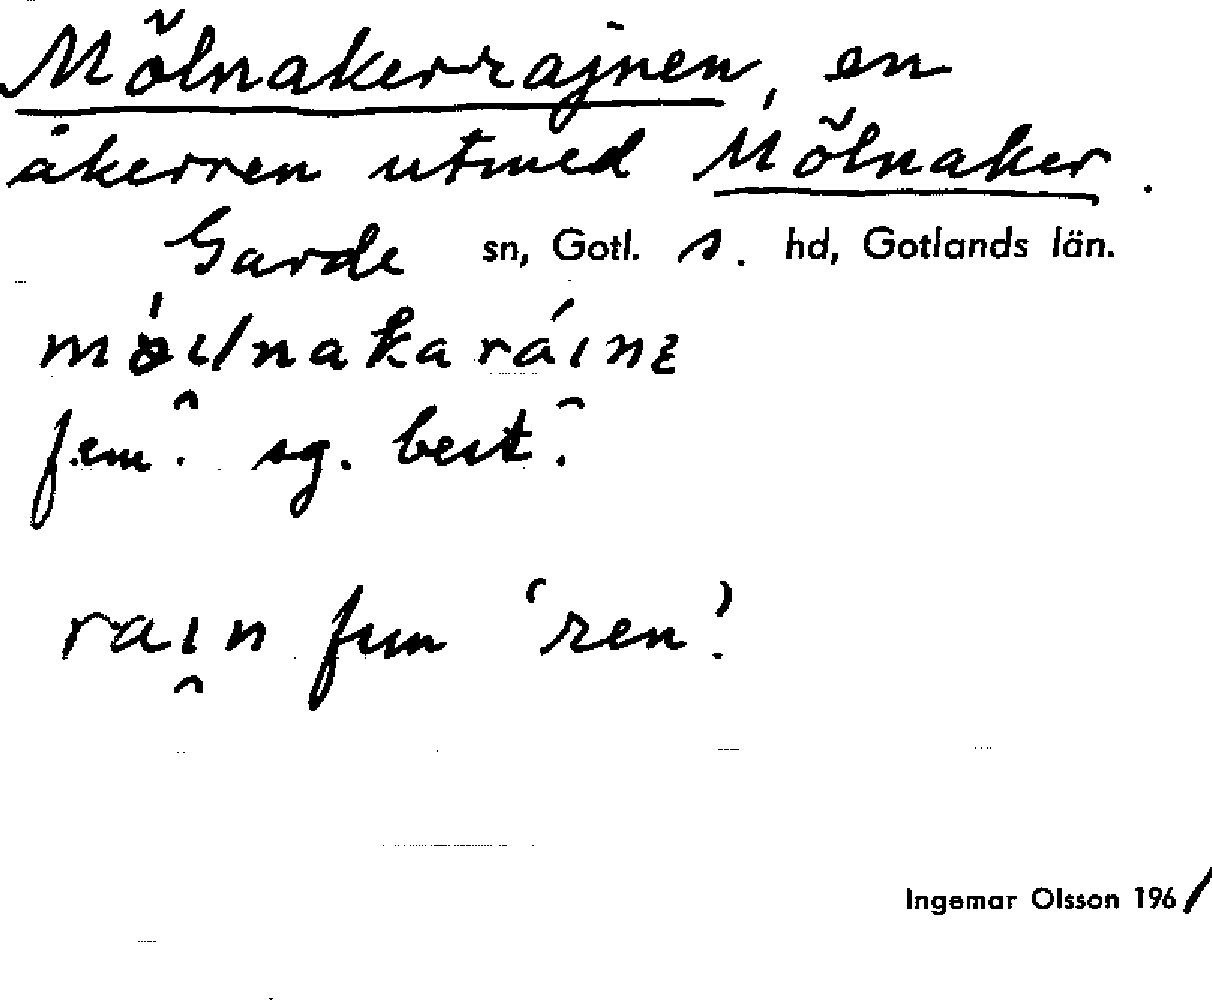 Mölnakerrajnen, en
åkerren utmed Mölnaker.
Garde sn, Gotl. s. hd, Gotlands län.
fem. sg. best.
raın fem 'ren'.
Ingemar Olsson 1961